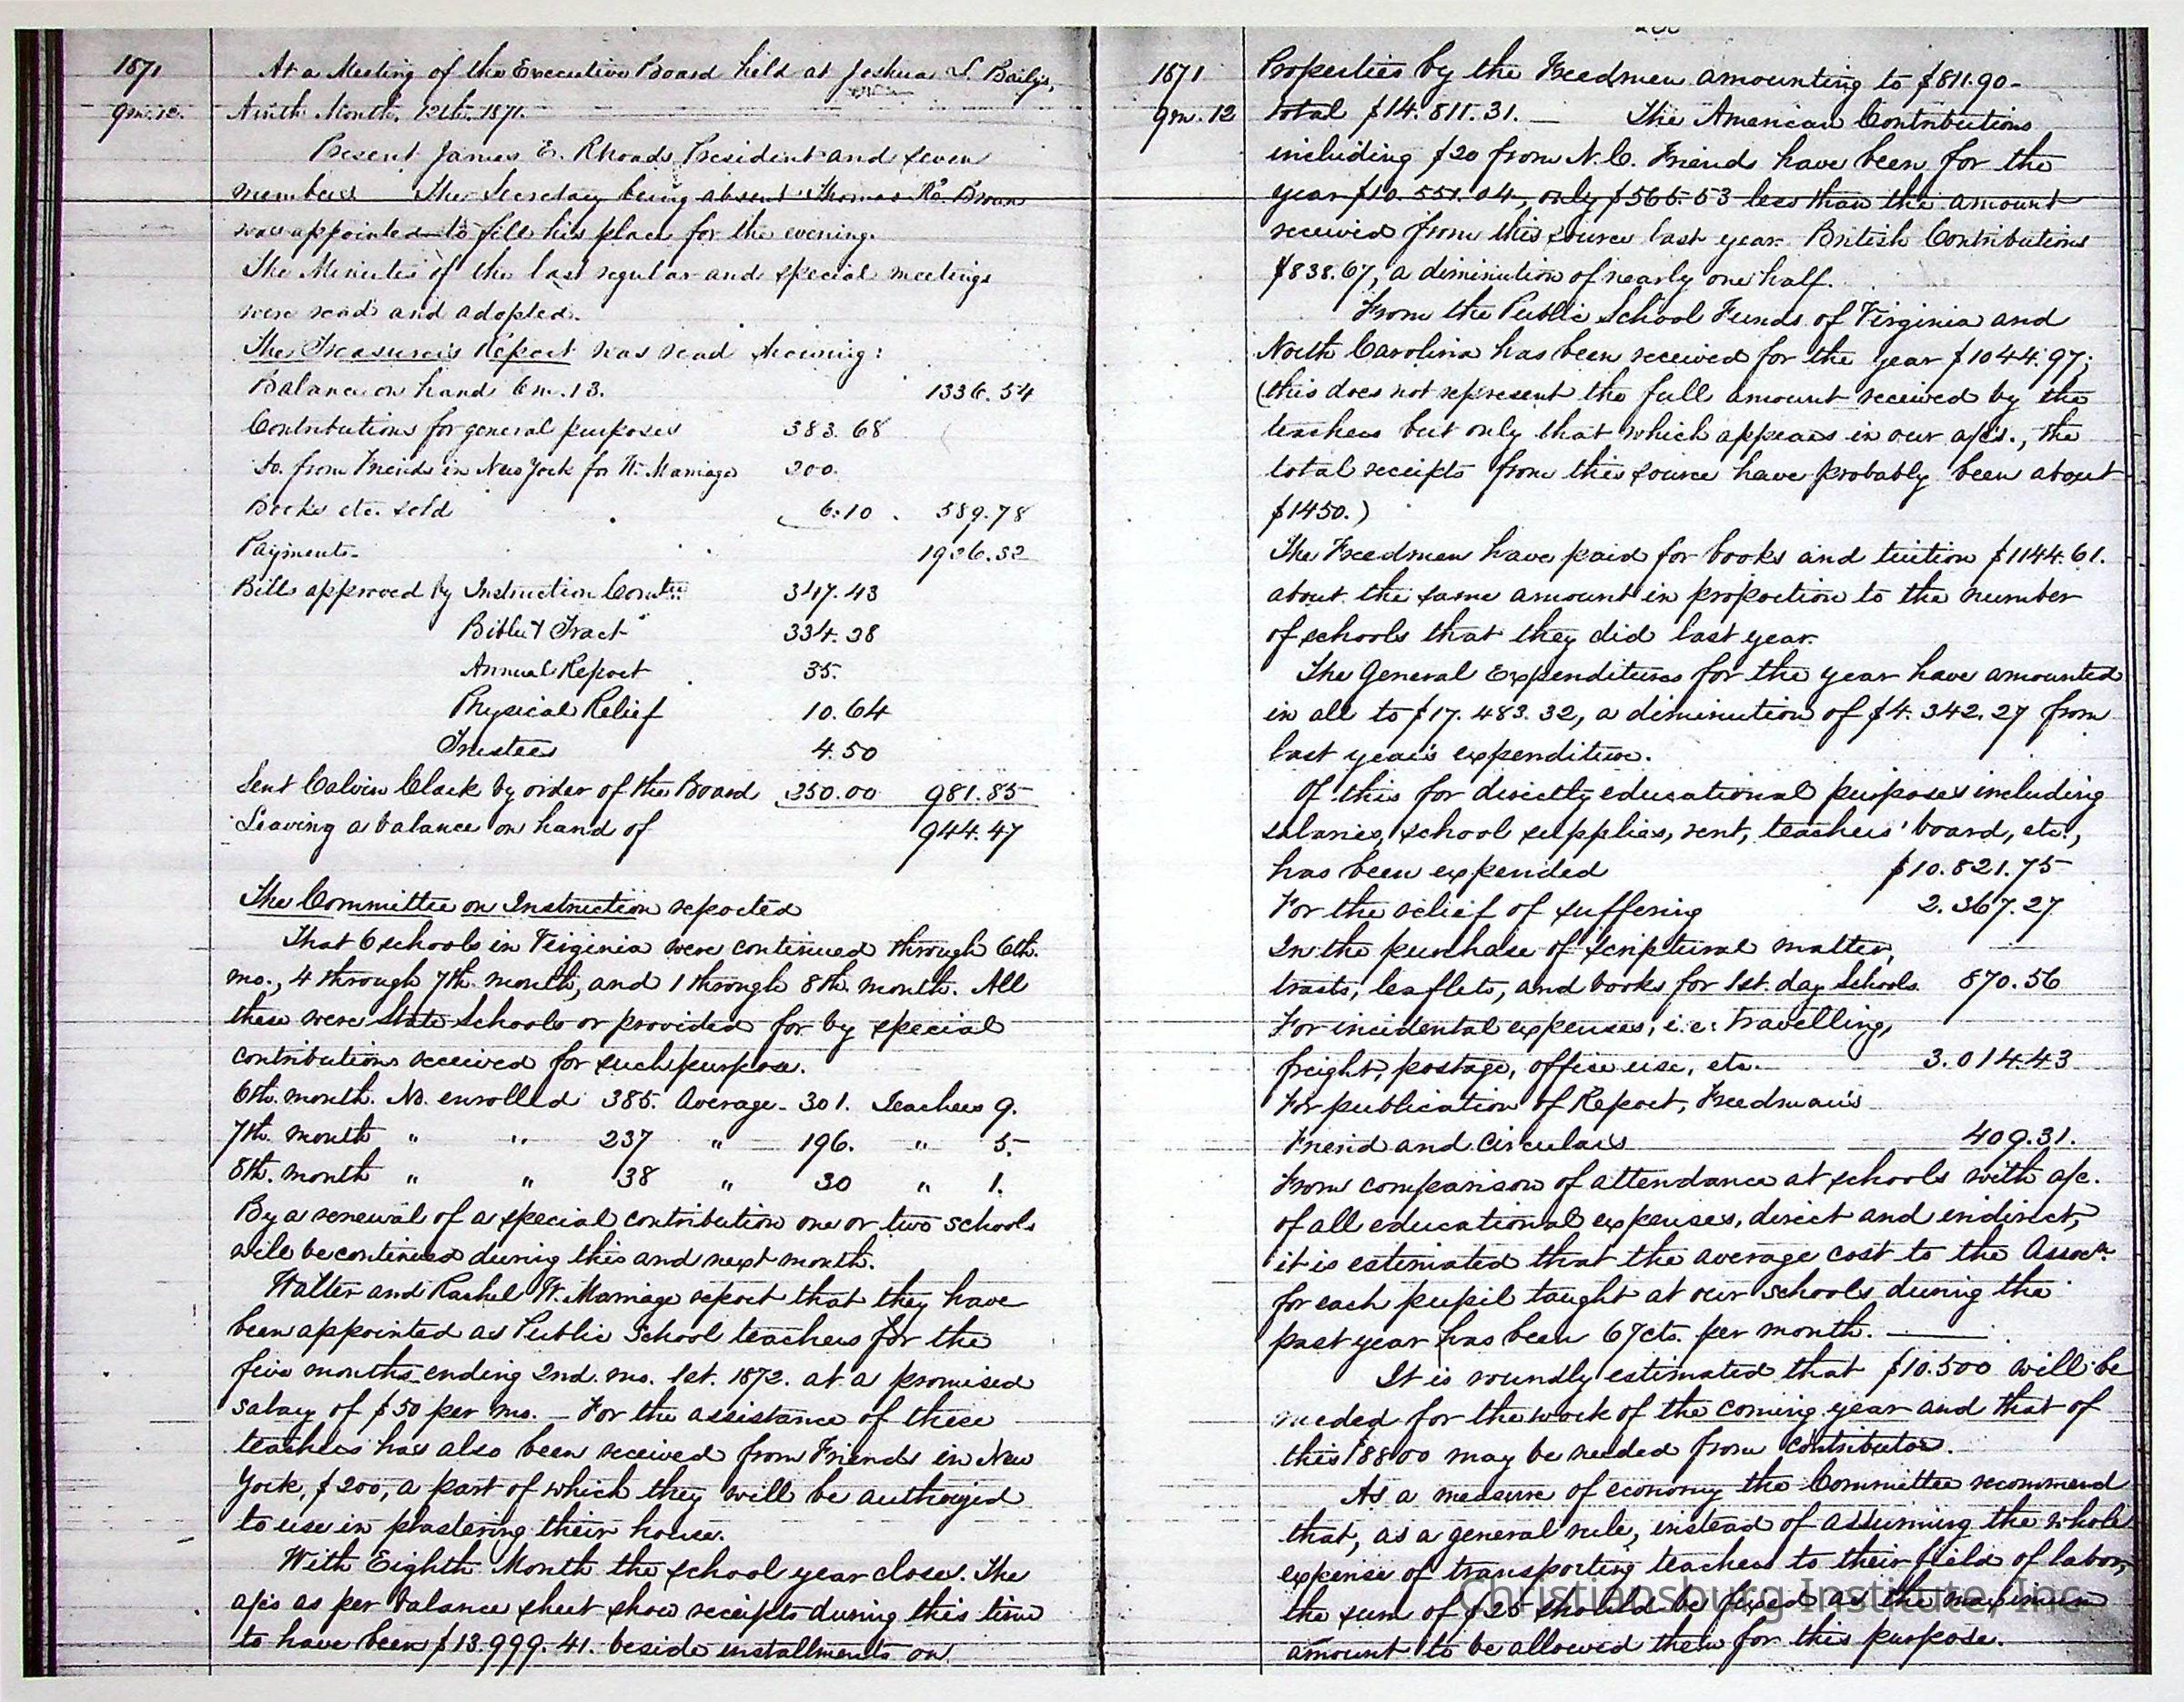 1871
9m.12.
At a Meeting of the Executive Board held at Joshua L. Baily's,
Ninth Month, 12th. 1871.
Present James E. Rhoads, President and seven
members The Secretary being absent Thomas Brown
was appointed to fill his place for the evening.
The Minutes of the last regular and special meetings
were read and adopted.
The Treasurer's Report was read showing:
Balance on hand 6m.13. 1336.54
Contributions for general purposes 383.68
Do. from Friends in New York for W. Marriage 200.
Books etc. sold 6.10 589.78
Payments. 1926.32
Bills approved by Instruction Comtee. 347.43
Bible & Tract " 334.28
Annual Report 35.
Physical Relief 10.64
Trustees 4.50
Sent Calvin Clark by order of the Board 250.00 981.85
Leaving a balance on hand of 944.47
The Committee on Instruction reported
That 6 schools in Virginia were continued through 6th.
mo., 4 through 7th. month, and 1 through 8th. month. All
these were State Schools or provided for by special
contributions received for such purpose.
6th. month. No. enrolled 385. Average. 301. Teachers 9.
7th. month " " 237 " 196. " 5.
8th. month " " 38 " 30 " 1.
By a renewal of a special contribution one or two schools
will be continued during this and next month.
Walter and Rachel W. Marriage report that they have
been appointed as Public School teachers for the
five months ending 2nd. mo. 1st. 1872. at a promised
salary of $50 per mo. — For the assistance of these
teachers has also been received from Friends in New
York, $200, a part of which they will be authorized
to use in plastering their house.
With Eighth Month the school year closes. The
a/cs as per balance sheet show receipts during this time
to have been $13.999.41. beside installments on
1871
9m.12
Properties by the Freedmen amounting to $811.90-
total $14.811.31. — The American Contributions
including $20 from N.C. Friends have been for the
year $10.551.04, only $565.53 less than the amount
received from this source last year. British Contributions
$838.67, a diminution of nearly one half.
From the Public School Funds of Virginia and
North Carolina has been received for the year $1044.97;
(this does not represent the full amount received by the
teachers but only that which appears in our a/cs., the
total receipts from this source have probably been about
$1450.)
The Freedmen have paid for books and tuition $1144.61.
about the same amount in proportion to the number
of schools that they did last year.
The General Expenditures for the year have amounted
in all to $17.483.32, a diminution of $4.342.27 from
last year's expenditure.
Of this for directly educational purposes including
salaries, school supplies, rent, teachers' board, etc.,
has been expended $10.821.75
For the relief of suffering 2.367.27
In the purchase of Scriptural matter,
tracts, leaflets, and books for 1st. day Schools. 870.56
For incidental expenses, i.e. travelling,
freight, postage, office use, etc. 3.014.43
For publication of Report, Freedman's
Friend and Circulars 409.31.
From comparison of attendance at schools with a/c.
of all educational expenses, direct and indirect,
it is estimated that the average cost to the Assocn.
for each pupil taught at our schools during the
past year has been 67cts. per month. —
It is roundly estimated that $10.500 will be
needed for the work of the coming year and that of
this $8800 may be needed from contributors.
As a measure of economy the Committee recommend
that, as a general rule, instead of assuming the whole
expense of transporting teachers to their field of labor,
the sum of $25 should be fixed as the maximum
amount to be allowed them for this purpose.
Christiansburg Institute, Inc.